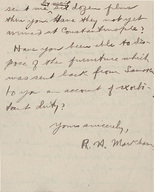 sent me, six dozen films
then you have they not yet
arrived at Constantinople?
Have you been able to dis-
pose of the furniture which
was sent back from Samsoun
to you on account of exorbi-
tant duty?
Yours sincerely,
R. A.